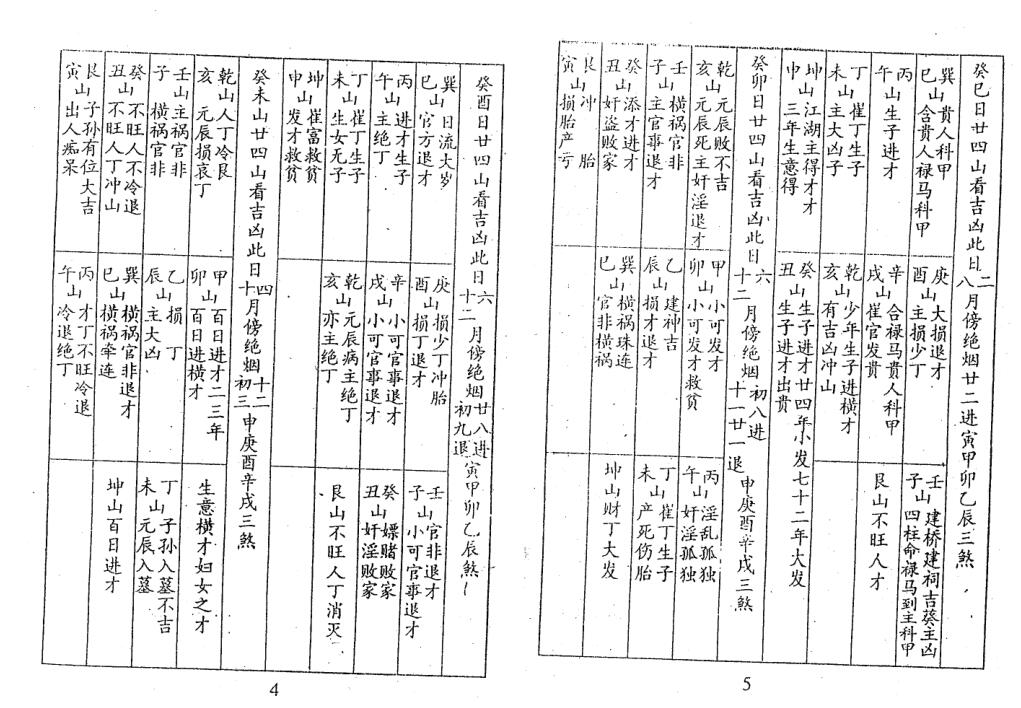 癸酉日廿四山看吉凶此日六十二月傍绝烟廿八进初九退寅甲卯乙辰煞
巽山日流大岁
巳官方退才
丙山进才生子
午主绝丁
丁山崔丁生子
未生女无子
坤山崔富救贫
申发才救贫
庚山损少丁冲胎
酉损丁退才
辛山小可官事退才
戌小可官事退才
乾山元辰病主绝丁
亥亦主绝丁
壬山官非退才
子小可官事退才
癸山嫖赌败家
丑奸淫败家
艮山不旺人丁消灭
癸未山廿四山看吉凶此日四十月傍绝烟十二初三申庚酉辛戌三煞
乾山人丁冷艮
亥元辰损哀丁
壬山主祸官非
子横祸官非
癸山不旺人不冷退
丑不旺人丁冲山
艮山子孙有位大吉
寅出人痴呆
甲山百日进才二三年
卯百日进横才
乙山损丁
辰主大凶
巽山横祸官非退才
巳横祸牵连
丙山才丁不旺冷退
午冷退绝丁
生意横才妇女之才
丁山子孙入墓不吉
未元辰入墓
坤山百日进才
4
癸巳日廿四山看吉凶此日二八月傍绝烟廿二进寅甲卯乙辰三煞
巽山贵人科甲
巳含贵人禄马科甲
丙山生子进才
午
丁山崔丁生子
未主大凶子
坤山江湖主得才
申三年生意得
庚山大损退才
酉主损少丁
辛山合禄马贵人科甲
戌崔官发贵
乾山少年生子进横才
亥有吉凶冲山
癸山生子进才廿四年小发七十二年大发
丑生子进才出贵
壬山建桥建祠吉葵主凶
子四柱命禄马到主科甲
艮山不旺人才
癸卯日廿四山看吉凶此日六十二月傍绝烟初八进十一廿一退申庚酉辛戌三煞
乾山元辰败不吉
亥元辰死主奸淫退才
壬山横祸官非
子主官事退才
癸山添才进才
丑奸盗败家
艮山冲胎
寅损胎产亏
甲山小可发才
卯小可发才救贫
乙山建神吉
辰损才退才
巽山横祸珠连
巳官非横祸
丙山淫乱孤独
午奸淫孤独
丁山崔丁生子
未产死伤胎
坤山财丁大发
5